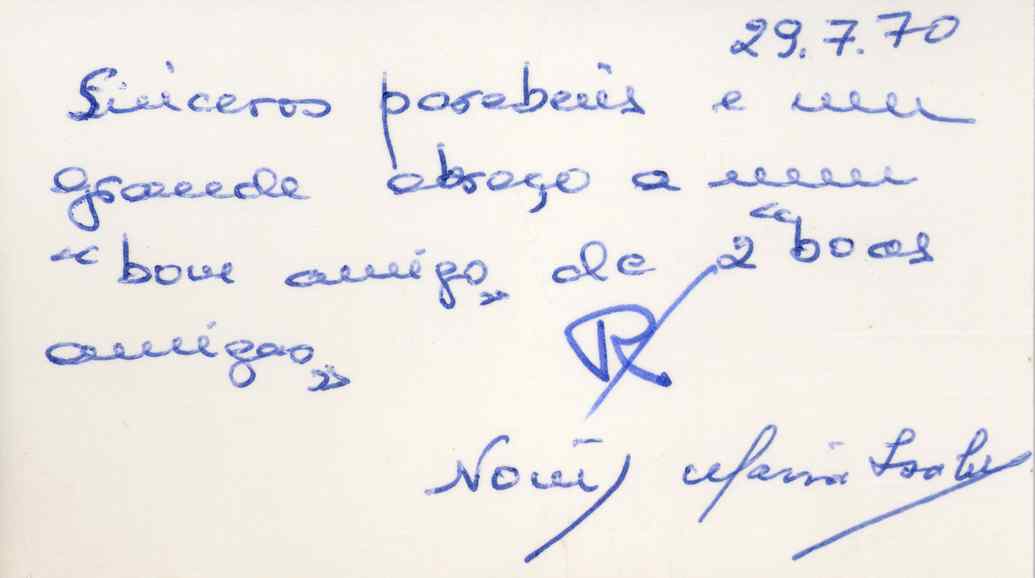 29.7.70
Sinceros parabéns e um
grande abraço a um
"bom amigo" de 2 "boas
amigas"
R
Maria Isabel